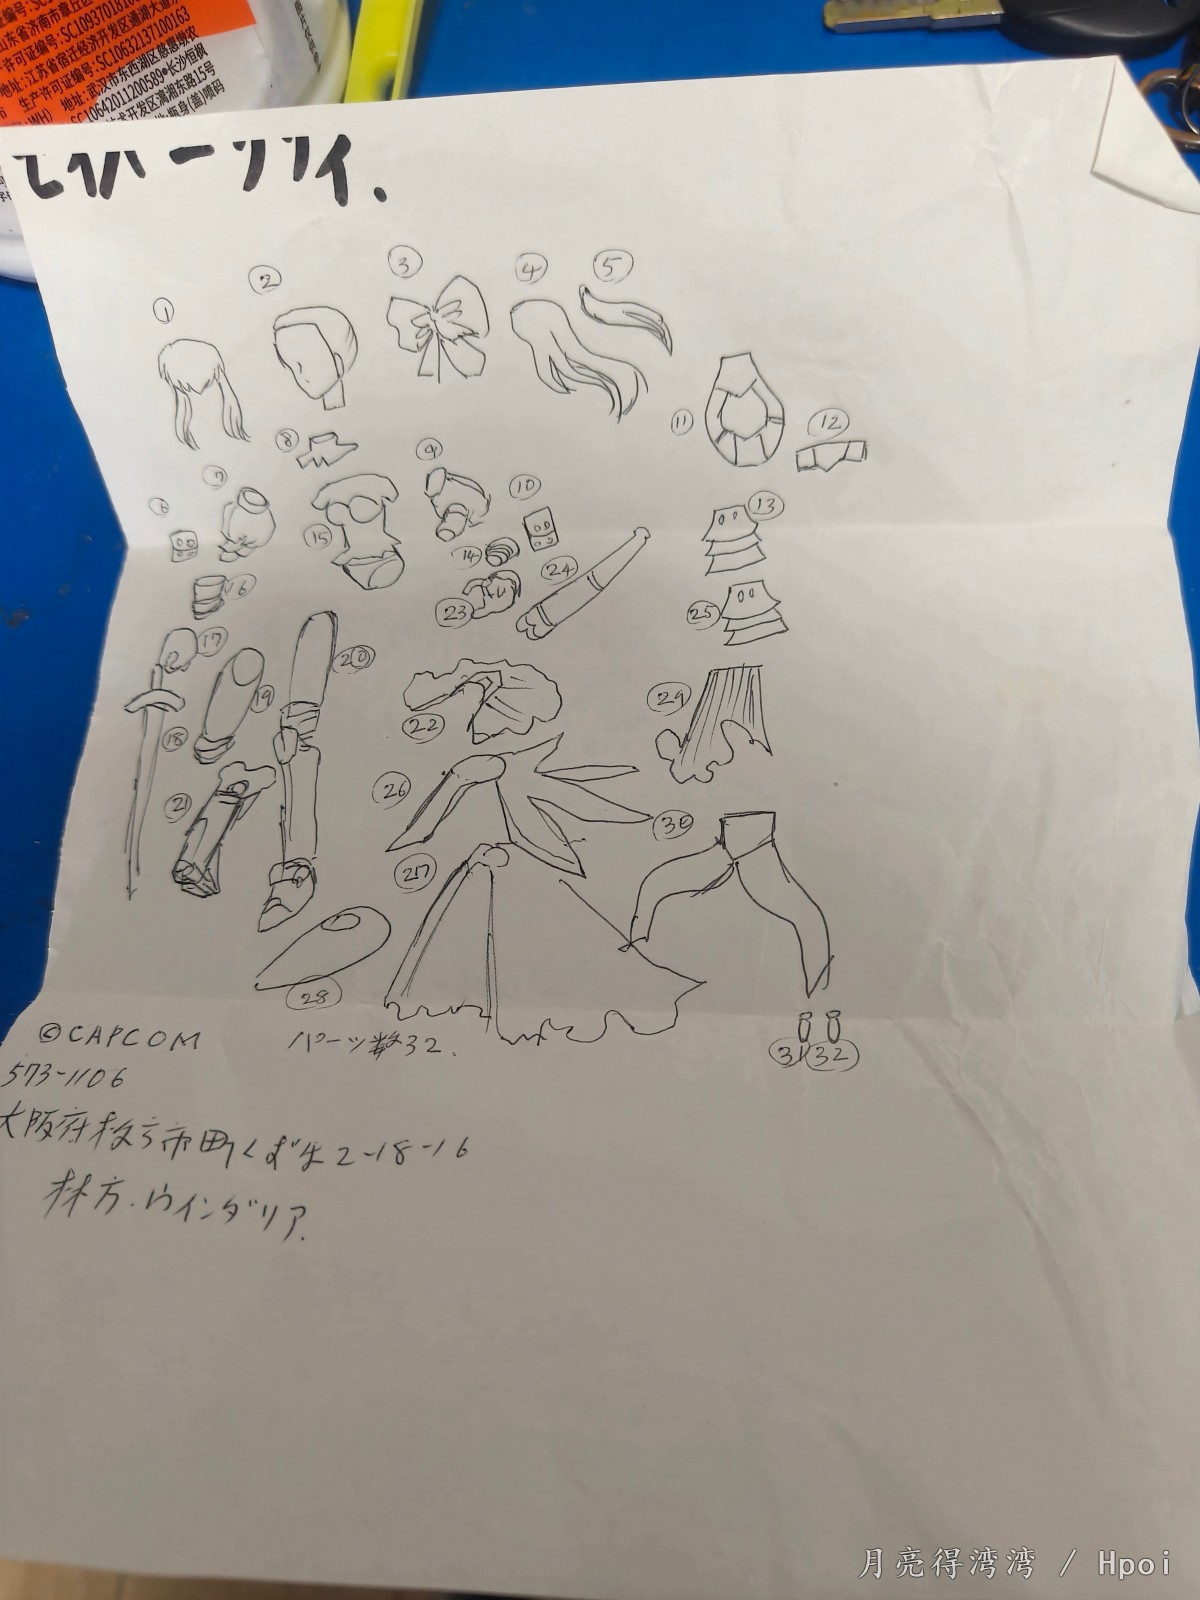 山东省济南市章丘区
许可证编号:SC10937018100
地址:江苏省宿迁经济开发区通湖大道
许可证编号:SC10632137100163
地址:武汉市东西湖区慈惠墩农
生产许可证编号:
SC10642011200589●长沙恒枫
WH)
术开发区漓湘东路15号
瓶身(盖)喷码
1
2
3
4
5
11
12
8
9
7
6
10
13
15
14
24
16
23
25
17
20
19
22
29
18
26
21
30
27
28
31
32
©CAPCOM
パーツ数32.
573-1106
大阪府枚方市町くずは2-18-16
林方.ウインダリア.
月亮得湾湾 / Hpoi